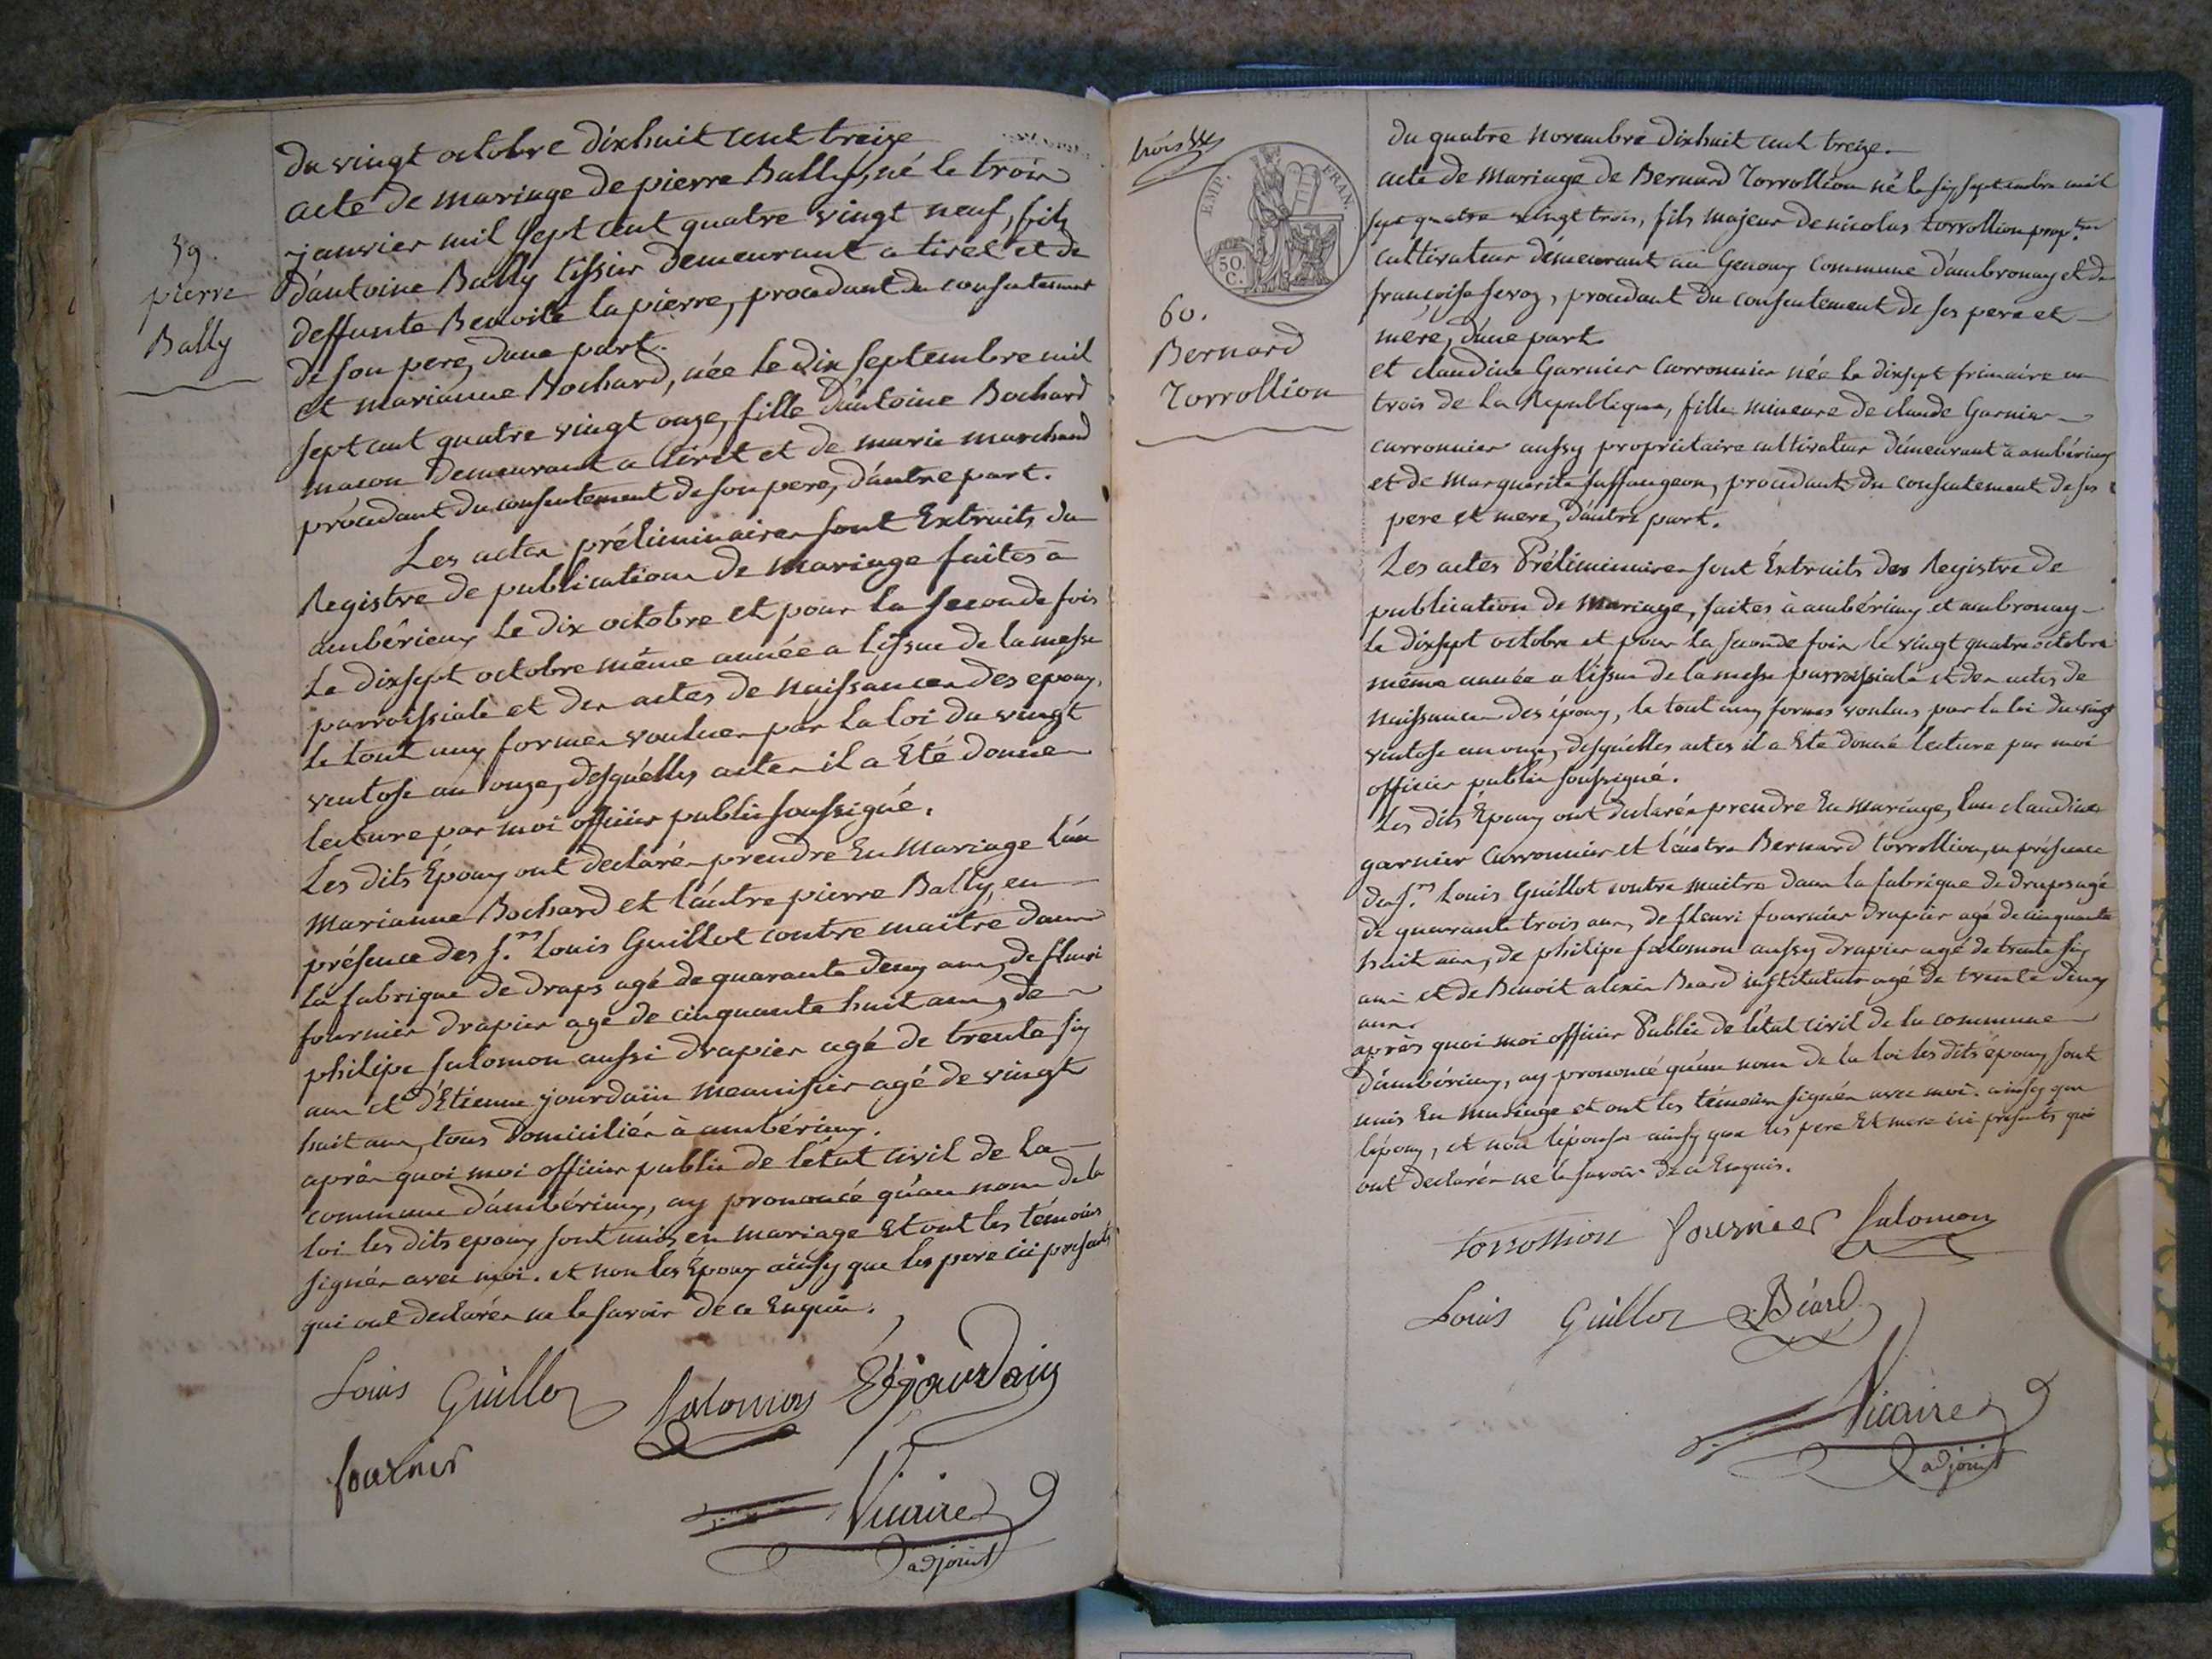 59.
pierre
Bally
du vingt octobre dixhuit cent treize
acte de mariage de pierre Bally, né le trois
janvier mil sept cent quatre vingt neuf, fils
d'antoine Bally tissier demeurant a tiret et de
deffunte Benoite lapierre, procedant du consentement
de son pere, dune part.
et marianne Bochard, née le dix septembre mil
sept cent quatre vingt onze, fille d'antoine Bochard
macon demeurant a tiret et de marie marchand
procedant du consentement de son pere, d'autre part.
Les actes préliminaires sont Extraits du
Registre de publications de mariage faites à
ambérieux le dix octobre et pour la seconde fois
le dixsept octobre même année a lissue de la messe
parroissiale et des actes de naissances des epoux,
le tout aux formes voulues par la loi du vingt
ventose an onze, desquelles actes il a Eté donné
lecture par moi officier public soussigné.
Les dits Epoux ont declarés prendre En Mariage L'un
Marianne Bochard et l'autre pierre Bally, en
présence des S.rs Louis Guillot contre maître dans
la fabrique de draps agé de quarante deux ans, de fleuri
fournier drapier agé de cinquante huit ans, de
philipe salomon aussi drapier agé de trente six
ans et d'Etienne jourdain menuisier agé de vingt
huit ans, tous domiciliés à ambérieux.
après quoi moi officier public de l'état civil de la
commune d'ambérieux, ay prononcé qu'au nom de la
loi les dits epoux sont unis en mariage Et ont les témoins
signés avec moi. et non les Epoux ainsy que les pere ici presents
qui ont declarés ne le savoir de ce Enquis.
Louis Guillot Salomon Et jourdain
fournier
Vicaire
adjoint
trois
EMP. FRAN.
50
C.
60.
Bernard
Torrollion
du quatre novembre dixhuit cent treize.
acte de Mariage de Bernard Torrollion né le six septembre mil
sept quatre vingt trois, fils majeur de nicolas torrollion prop.re
cultivateur démeurant au Genoux commune d'ambronay et de
françoise feroz, procedant du consentement de ses pere et
mere, d'une part.
et claudine Garnier Curronnier née le dixsept frimaire an
trois de la Republique, fille mineure de claude Garnier
curronnier aussy proprietaire cultivateur démeurant a ambérieux
et de Marguerite suffangeon, procedant du consentement de ses
pere et mere, d'autre part.
Les actes Préliminaires sont Extraits des Registre de
publication de Mariage, faites à ambérieux et ambronay
le dixsept octobre et pour la seconde fois le vingt quatre octobre
même année a l'issue de la messe parroissiale et des actes de
naissances des époux, le tout aux formes voulues par la loi du vingt
ventose an onze, desquelles actes il a Eté donné lecture par moi
officier public soussigné.
Les dits Epoux ont declarés prendre En mariage, l'un claudine
garnier Curronnier et l'autre Bernard torrollion, en présence
des S.rs Louis Guillot contre maitre dans la fabrique de draps agé
de quarante trois ans, de fleuri fournier drapier agé de cinquante
huit ans, de philipe salomon aussy drapier agé de trente six
ans et de Benoit alexis Beard instituteur agé de trente deux
ans.
après quoi moi officier Public de l'etat civil de la commune
d'ambérieux, ay prononcé qu'au nom de la loi les dits époux sont
unis En mariage et ont les témoins signés avec moi. ainsy que
lépoux, et non lépouse ainsy que les pere Et mere ici presents qui
ont declarés ne le savoir de ce Enquis.
torrollion fournier Salomon
Louis Guillot Béard
Vicaire
adjoint